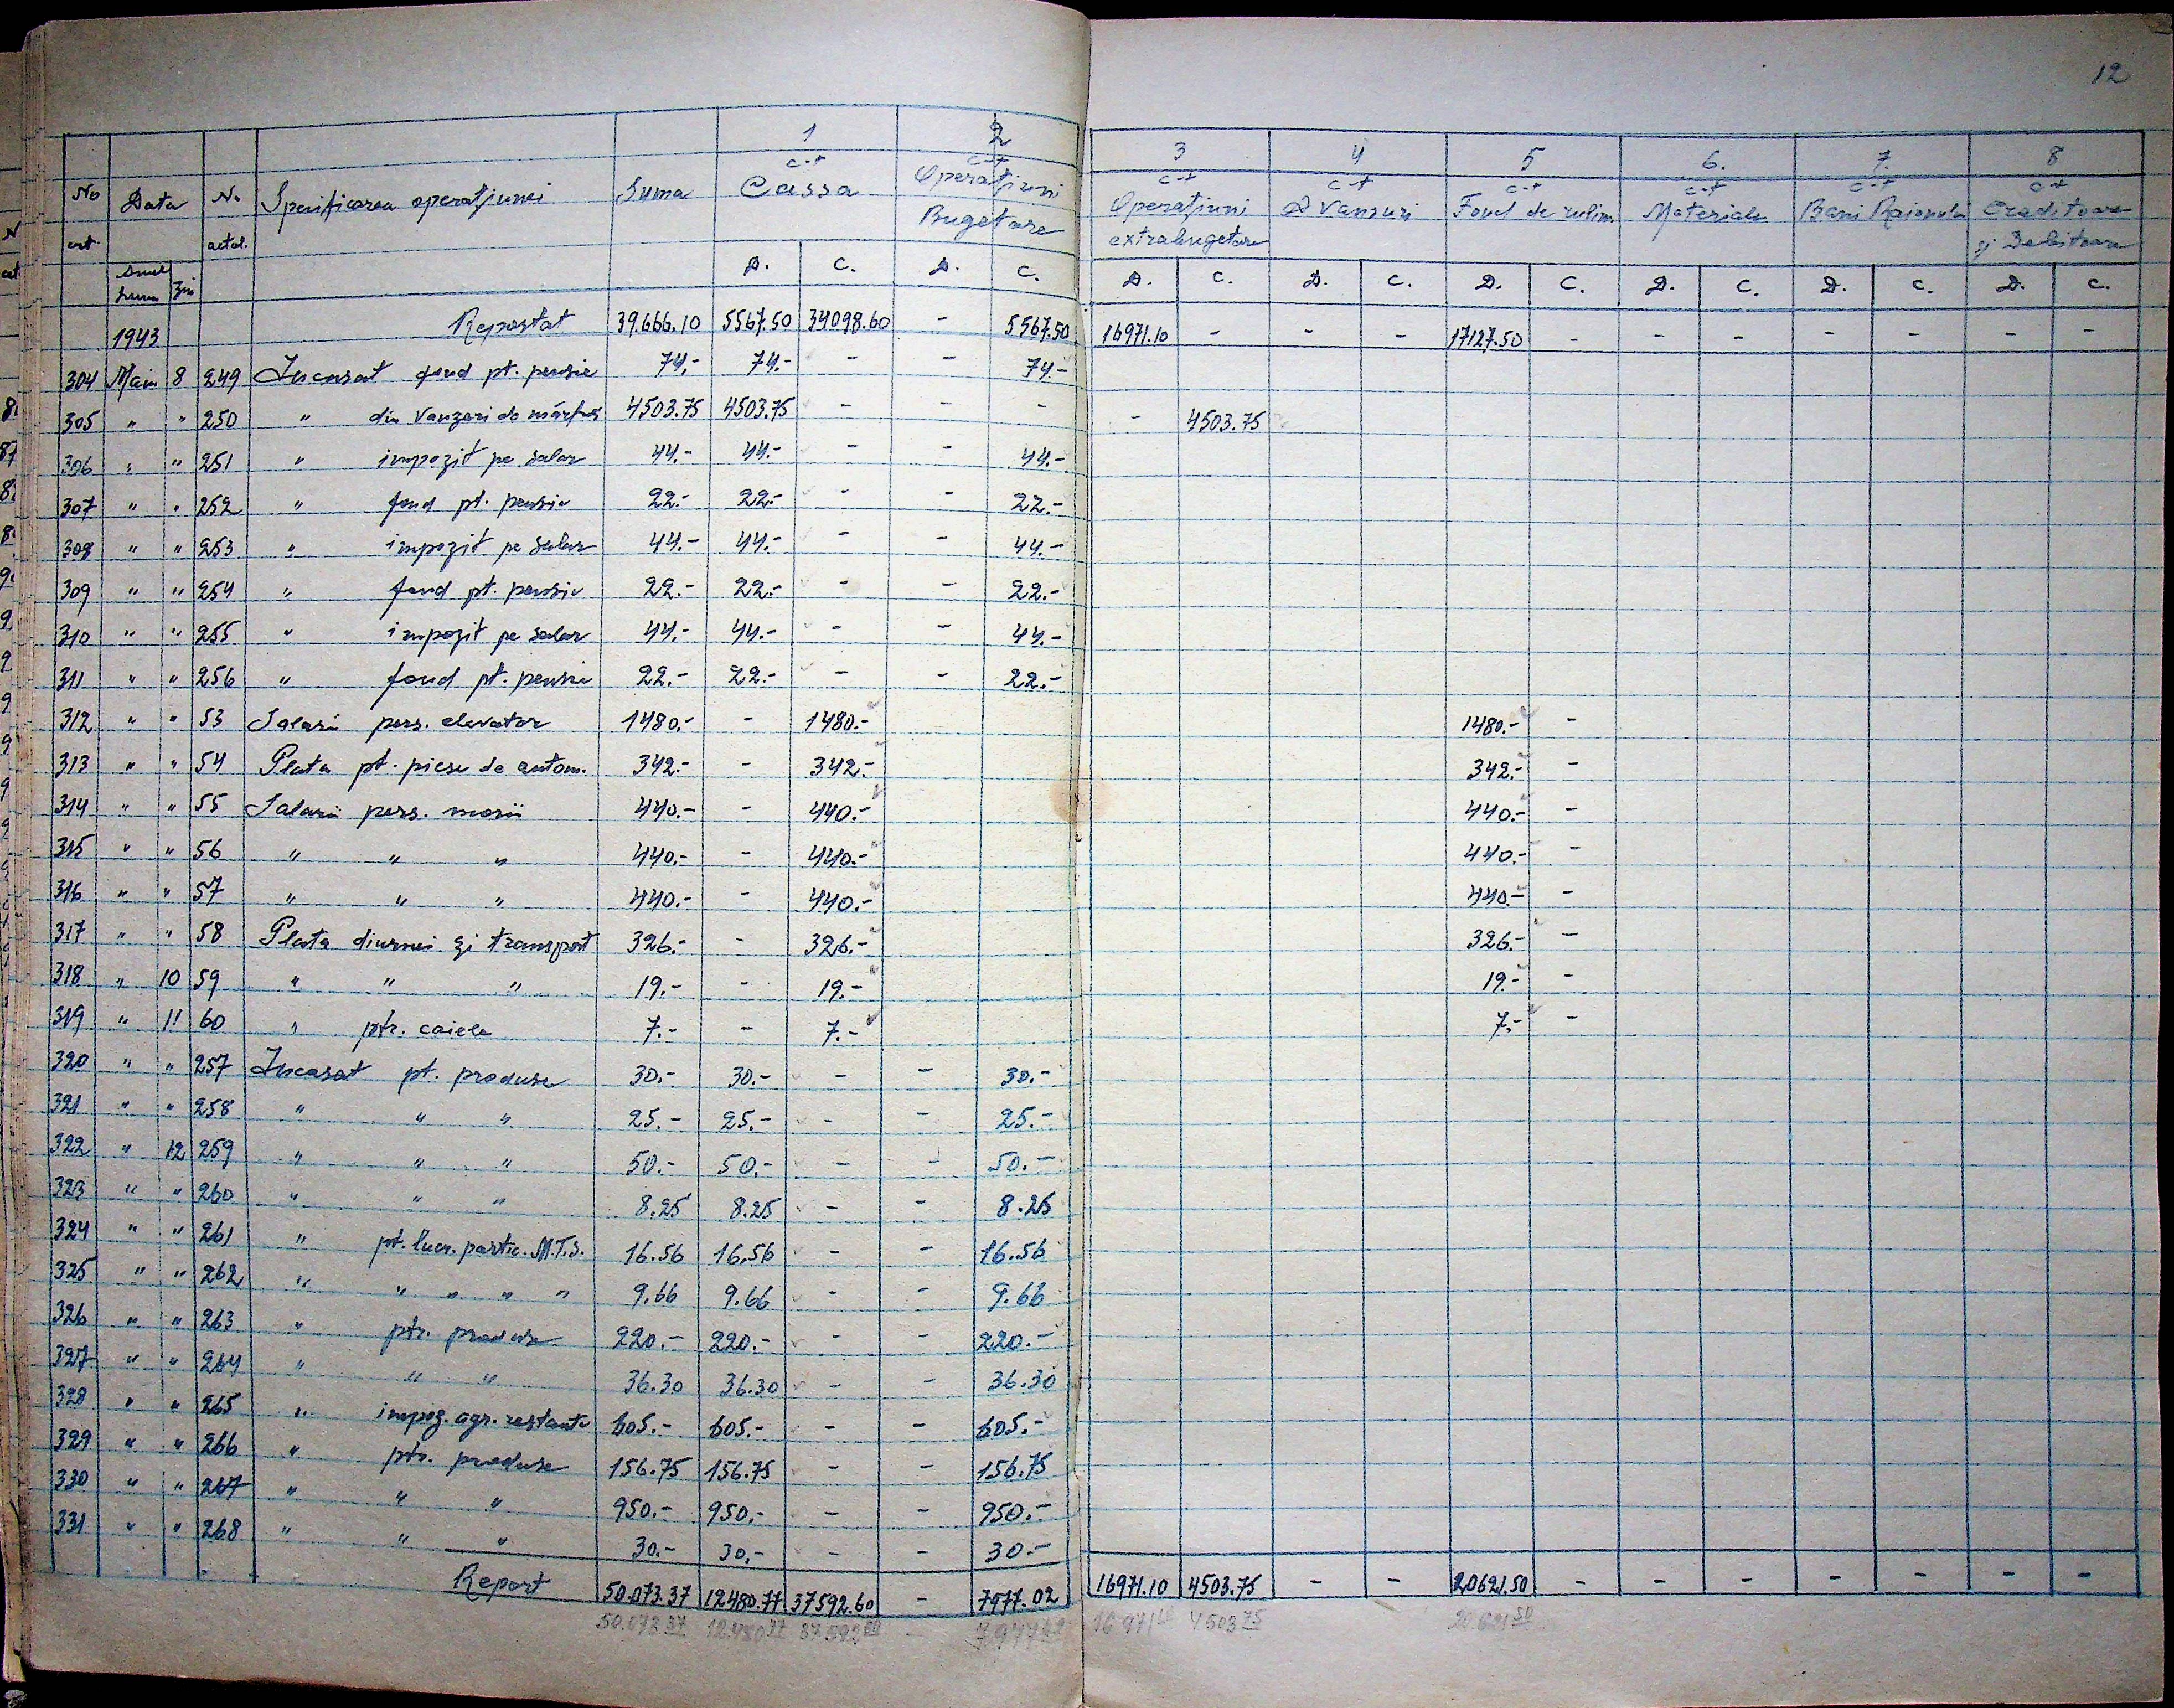 12
1 2 3 4 5 6. 7. 8
c-t c-t c-t c-t c-t c-t c-t c-t
No crt. Data No actul. Specificarea operaţiunei Suma Cassa Operaţiuni Bugetare Operaţiuni extrabugetare D Vansuri Fond de rulim. Materiale Bani Raionali Creditoare şi Debitoare
Anul luna Ziu D. C. D. C. D. C. D. C. D. C. D. C. D. C. D. C.
1943 Reportat 39.666.10 5567.50 34098.60 - 5567.50 16971.10 - - - 17127.50 - - - - - - -
304 Mai 8 249 Incasat fond pt. pensie 74,- 74.- - - 74.-
305 " " 250 " din Vanzari de mărfuri 4503.75 4503.75 - - - - 4503.75
306 " " 251 " impozit pe salar 44.- 44.- - - 44.-
307 " " 252 " fond pt. pensie 22.- 22.- - - 22.-
308 " " 253 " impozit pe salar 44.- 44.- - - 44.-
309 " " 254 " fond pt. pensie 22.- 22.- - - 22.-
310 " " 255 " impozit pe salar 44.- 44.- - - 44.-
311 " " 256 " fond pt. pensie 22.- 22.- - - 22.-
312 " " 53 Salarii pers. elevator 1480.- - 1480.- 1480.- -
313 " " 54 Plata pt. piese de autom. 342.- - 342.- 342.- -
314 " " 55 Salarii pers. morii 440.- - 440.- 440.- -
315 " " 56 " " " 440.- - 440.- 440.- -
316 " " 57 " " " 440.- - 440.- 440.- -
317 " " 58 Plata diurnei şi transport 326.- - 326.- 326.- -
318 " 10 59 " " " 19.- - 19.- 19.- -
319 " 11 60 " ptr. caiele 7.- - 7.- 7.- -
320 " " 257 Incasat pt. produse 30.- 30.- - - 30.-
321 " " 258 " " " 25.- 25.- - - 25.-
322 " 12 259 " " " 50.- 50.- - - 50.-
323 " " 260 " " " 8.25 8.25 - - 8.25
324 " " 261 " pt. lucr. partic. M.T.S. 16.56 16.56 - - 16.56
325 " " 262 " " " " " 9.66 9.66 - - 9.66
326 " " 263 " ptr. produse 220.- 220.- - - 220.-
327 " " 264 " " " 36.30 36.30 - - 36.30
328 " " 265 " impoz. agr. restante 605.- 605.- - - 605.-
329 " " 266 " ptr. produse 156.75 156.75 - - 156.75
330 " " 267 " " " 950.- 950.- - - 950.-
331 " " 268 " " " 30.- 30,- - - 30.-
Report 50.073.37 12480.77 37592.60 - 7977.02 16971.10 4503.75 - - 20621.50 - - - - - - -
50.073 37 12.480 77 37.592 60 7.977 02 16 971 10 4 503 75 20.621 50